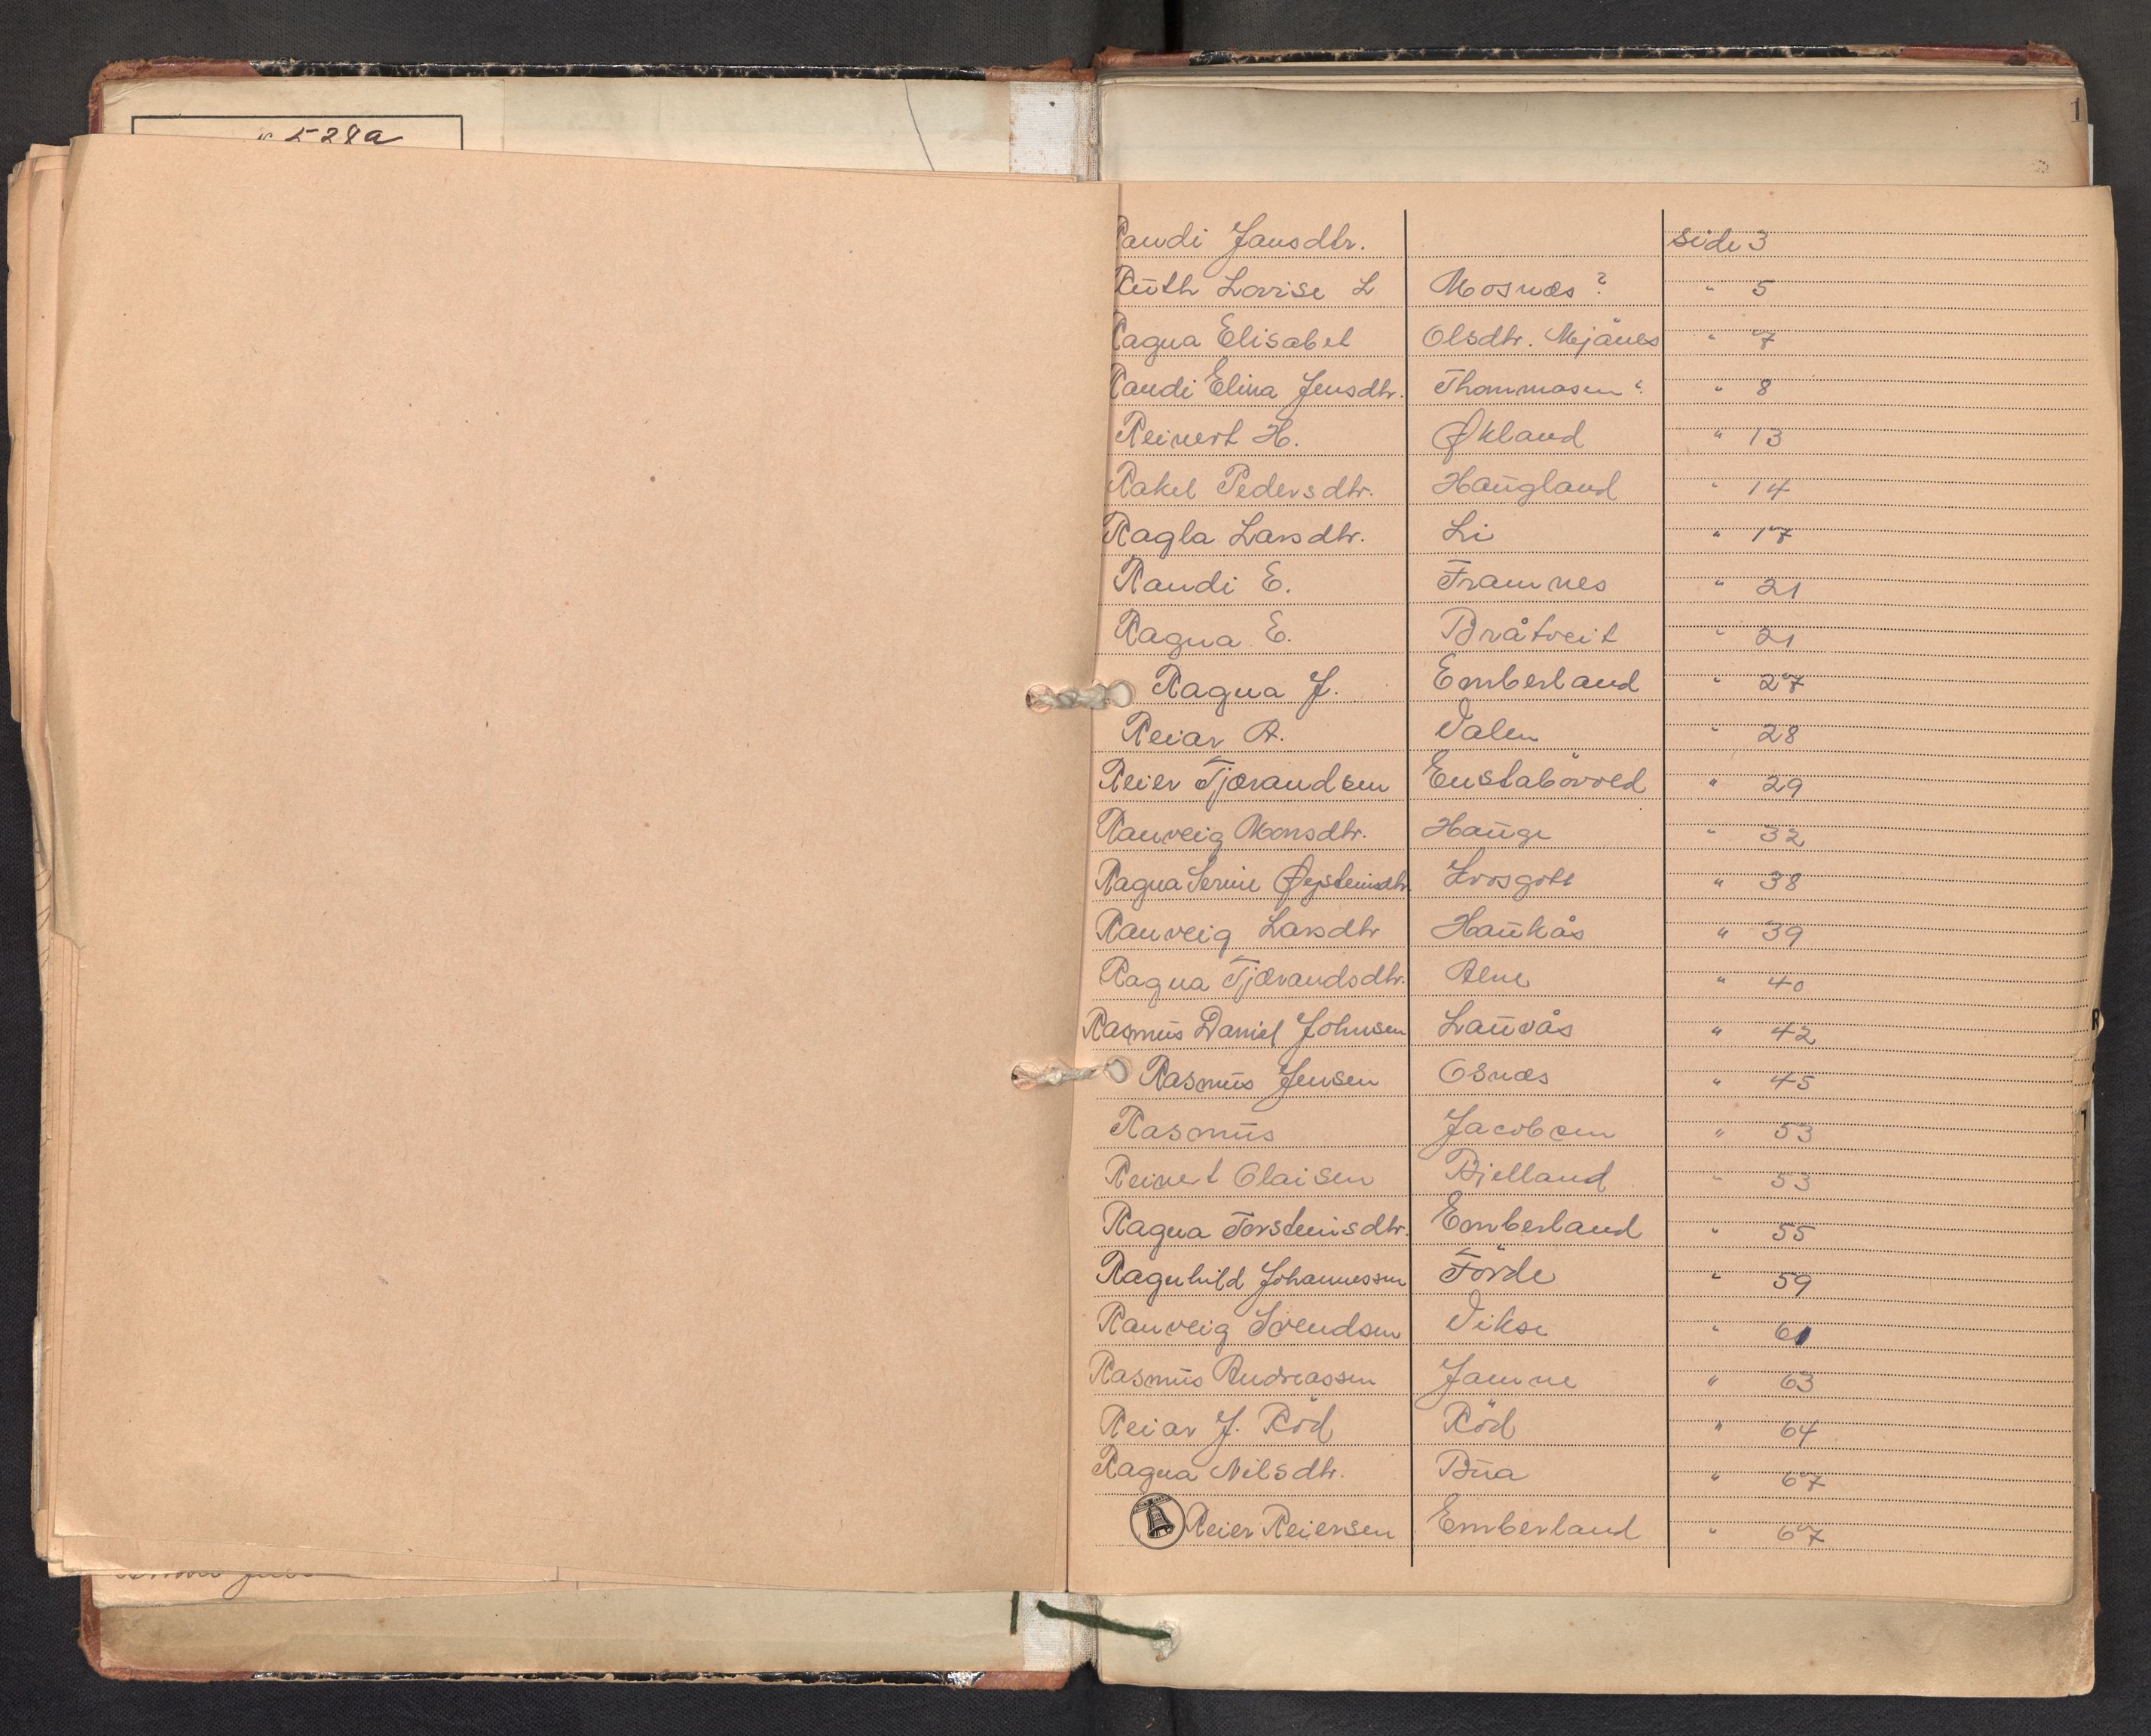 528a
1
Randi Jansdtr. side 3
Ruth Lovise L Mosnæs ? " 5
Ragna Elisabet Olsdtr. Mejånes " 7
Randi Elina Jensdtr. Thommasen ? " 8
Reinert H. Økland " 13
Rakel Pedersdtr. Haugland " 14
Ragla Larsdtr. Li " 17
Randi E. Framnes " 21
Ragna E. Bråtveit " 21
Ragna J. Emberland " 27
Reiar A. Valen " 28
Reier Tjærandsen Eustabövold " 29
Ranveig Monsdtr. Hauge " 32
Ragna Serine Øysteinsdtr " 38
Ranveig Larsdtr Haukås " 39
Ragna Tjærandsdtr. Alne " 40
Rasmus Daniel Johnsen Lauvås " 42
Rasmus Jensen Osnæs " 45
Rasmus Jacobsen " 53
Reinert Olaisen Bjelland " 53
Ragna Torsteinsdtr. Emberland " 55
Ragnhild Johannessen Förde " 59
Ranveig Svendsen Vikse " 61
Rasmus Andreassen Jamne " 63
Reiar J. Röd Röd " 64
Ragna Nilsdtr. Bua " 67
Reier Reiersen Emberland " 67
R